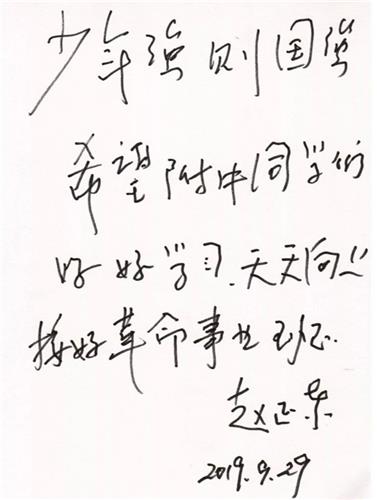 少年强则国强
希望附中同学们
好好学习.天天向上
接好革命事业的班.
赵正东
2019.9.29